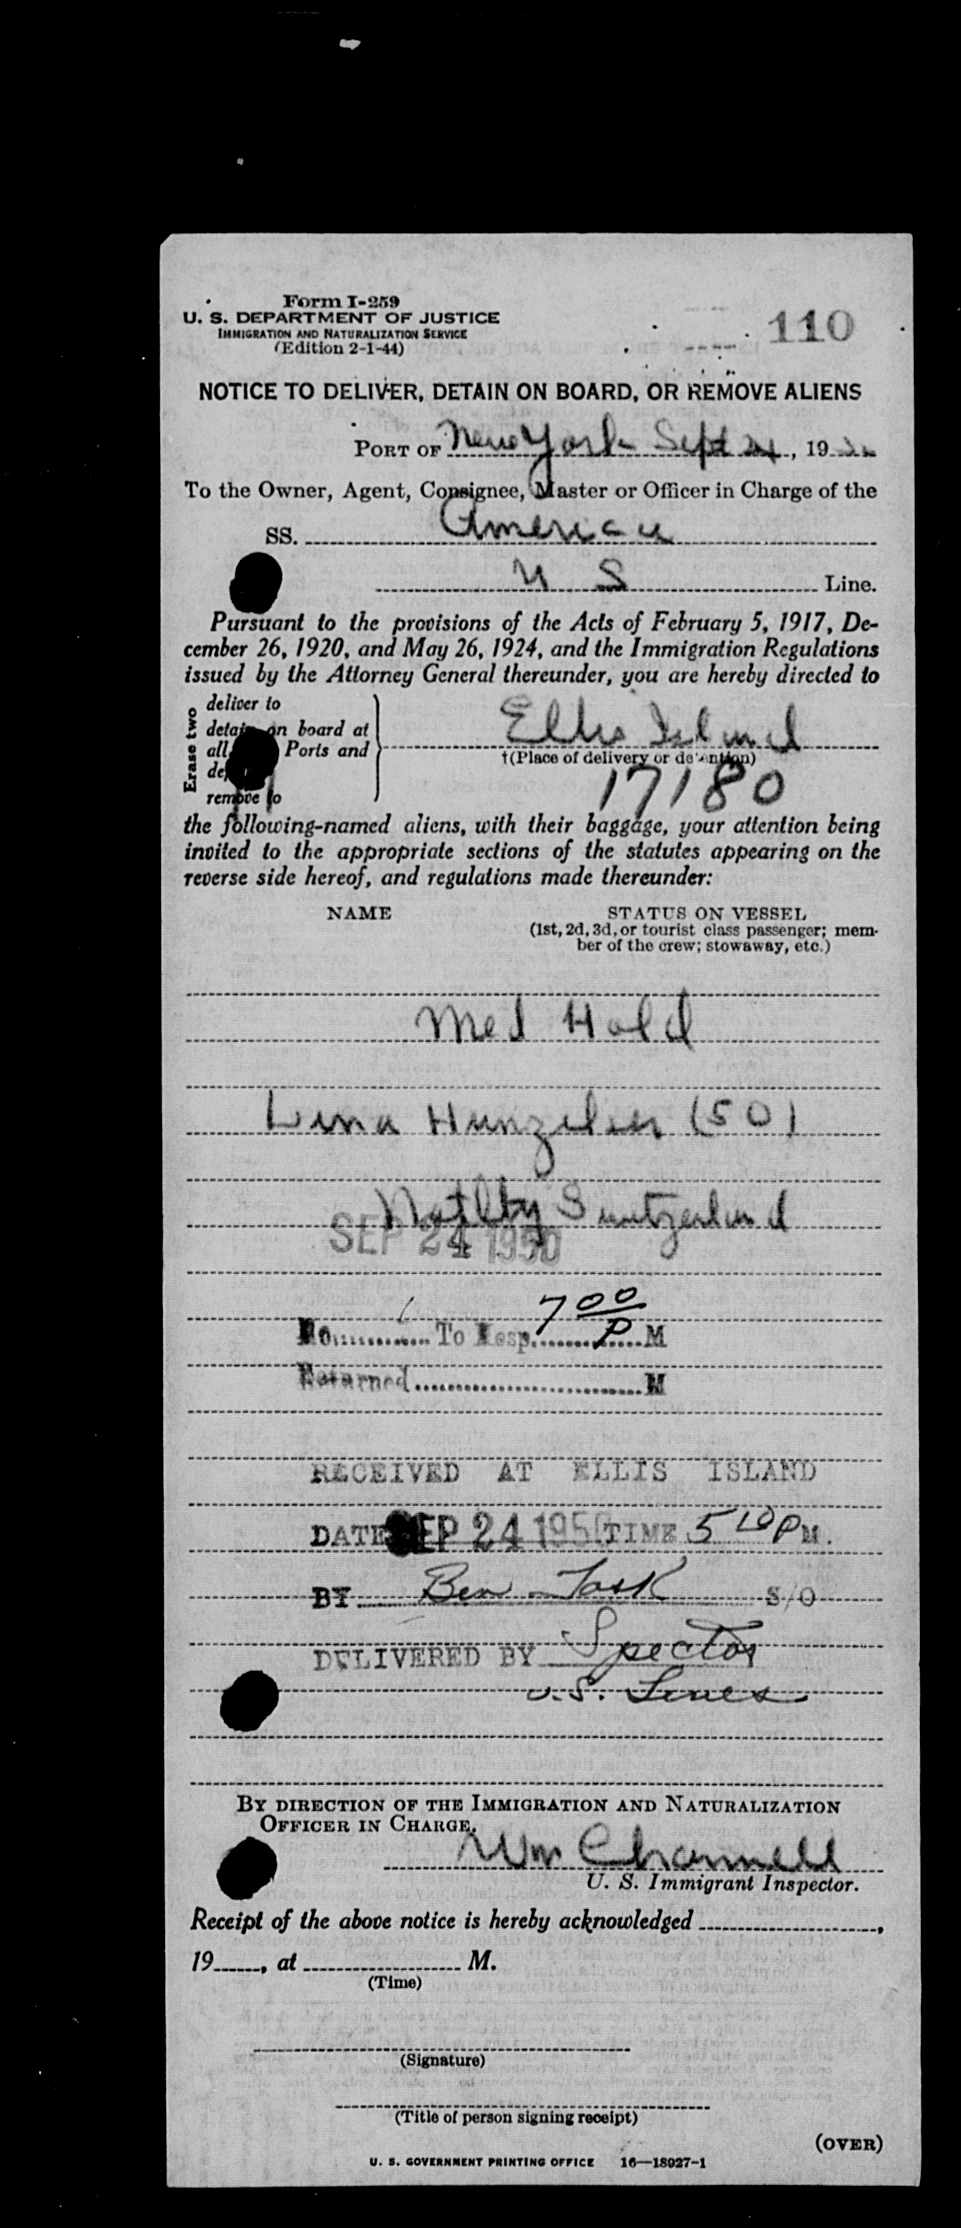 Form I-259
U. S. DEPARTMENT OF JUSTICE
IMMIGRATION AND NATURALIZATION SERVICE
(Edition 2-1-44)
110
NOTICE TO DELIVER, DETAIN ON BOARD, OR REMOVE ALIENS
PORT OF New York Sept 24, 19
To the Owner, Agent, Consignee, Master or Officer in Charge of the
SS. America
U S Line.
Pursuant to the provisions of the Acts of February 5, 1917, De-
cember 26, 1920, and May 26, 1924, and the Immigration Regulations
issued by the Attorney General thereunder, you are hereby directed to
Erase two
deliver to
detain on board at
all Ports and
remove to
Ellis Island
†(Place of delivery or detention)
17180
the following-named aliens, with their baggage, your attention being
invited to the appropriate sections of the statutes appearing on the
reverse side hereof, and regulations made thereunder:
NAME
STATUS ON VESSEL
(1st, 2d, 3d, or tourist class passenger; mem-
ber of the crew; stowaway, etc.)
Med Hold
Lina Hunziker (50)
Natlty Switzerland
SEP 24 1950
No. 1 To Hosp. 7 00 P M
Returned M
RECEIVED AT ELLIS ISLAND
DATE SEP 24 1950 TIME 5 10 P M.
BY Ben Task S/O
DELIVERED BY Spector
U.S. Lines
BY DIRECTION OF THE IMMIGRATION AND NATURALIZATION
OFFICER IN CHARGE.
Wm
U. S. Immigrant Inspector.
Receipt of the above notice is hereby acknowledged ,
19 , at M.
(Time)
(Signature)
(Title of person signing receipt)
(OVER)
U. S. GOVERNMENT PRINTING OFFICE 16—18927-1